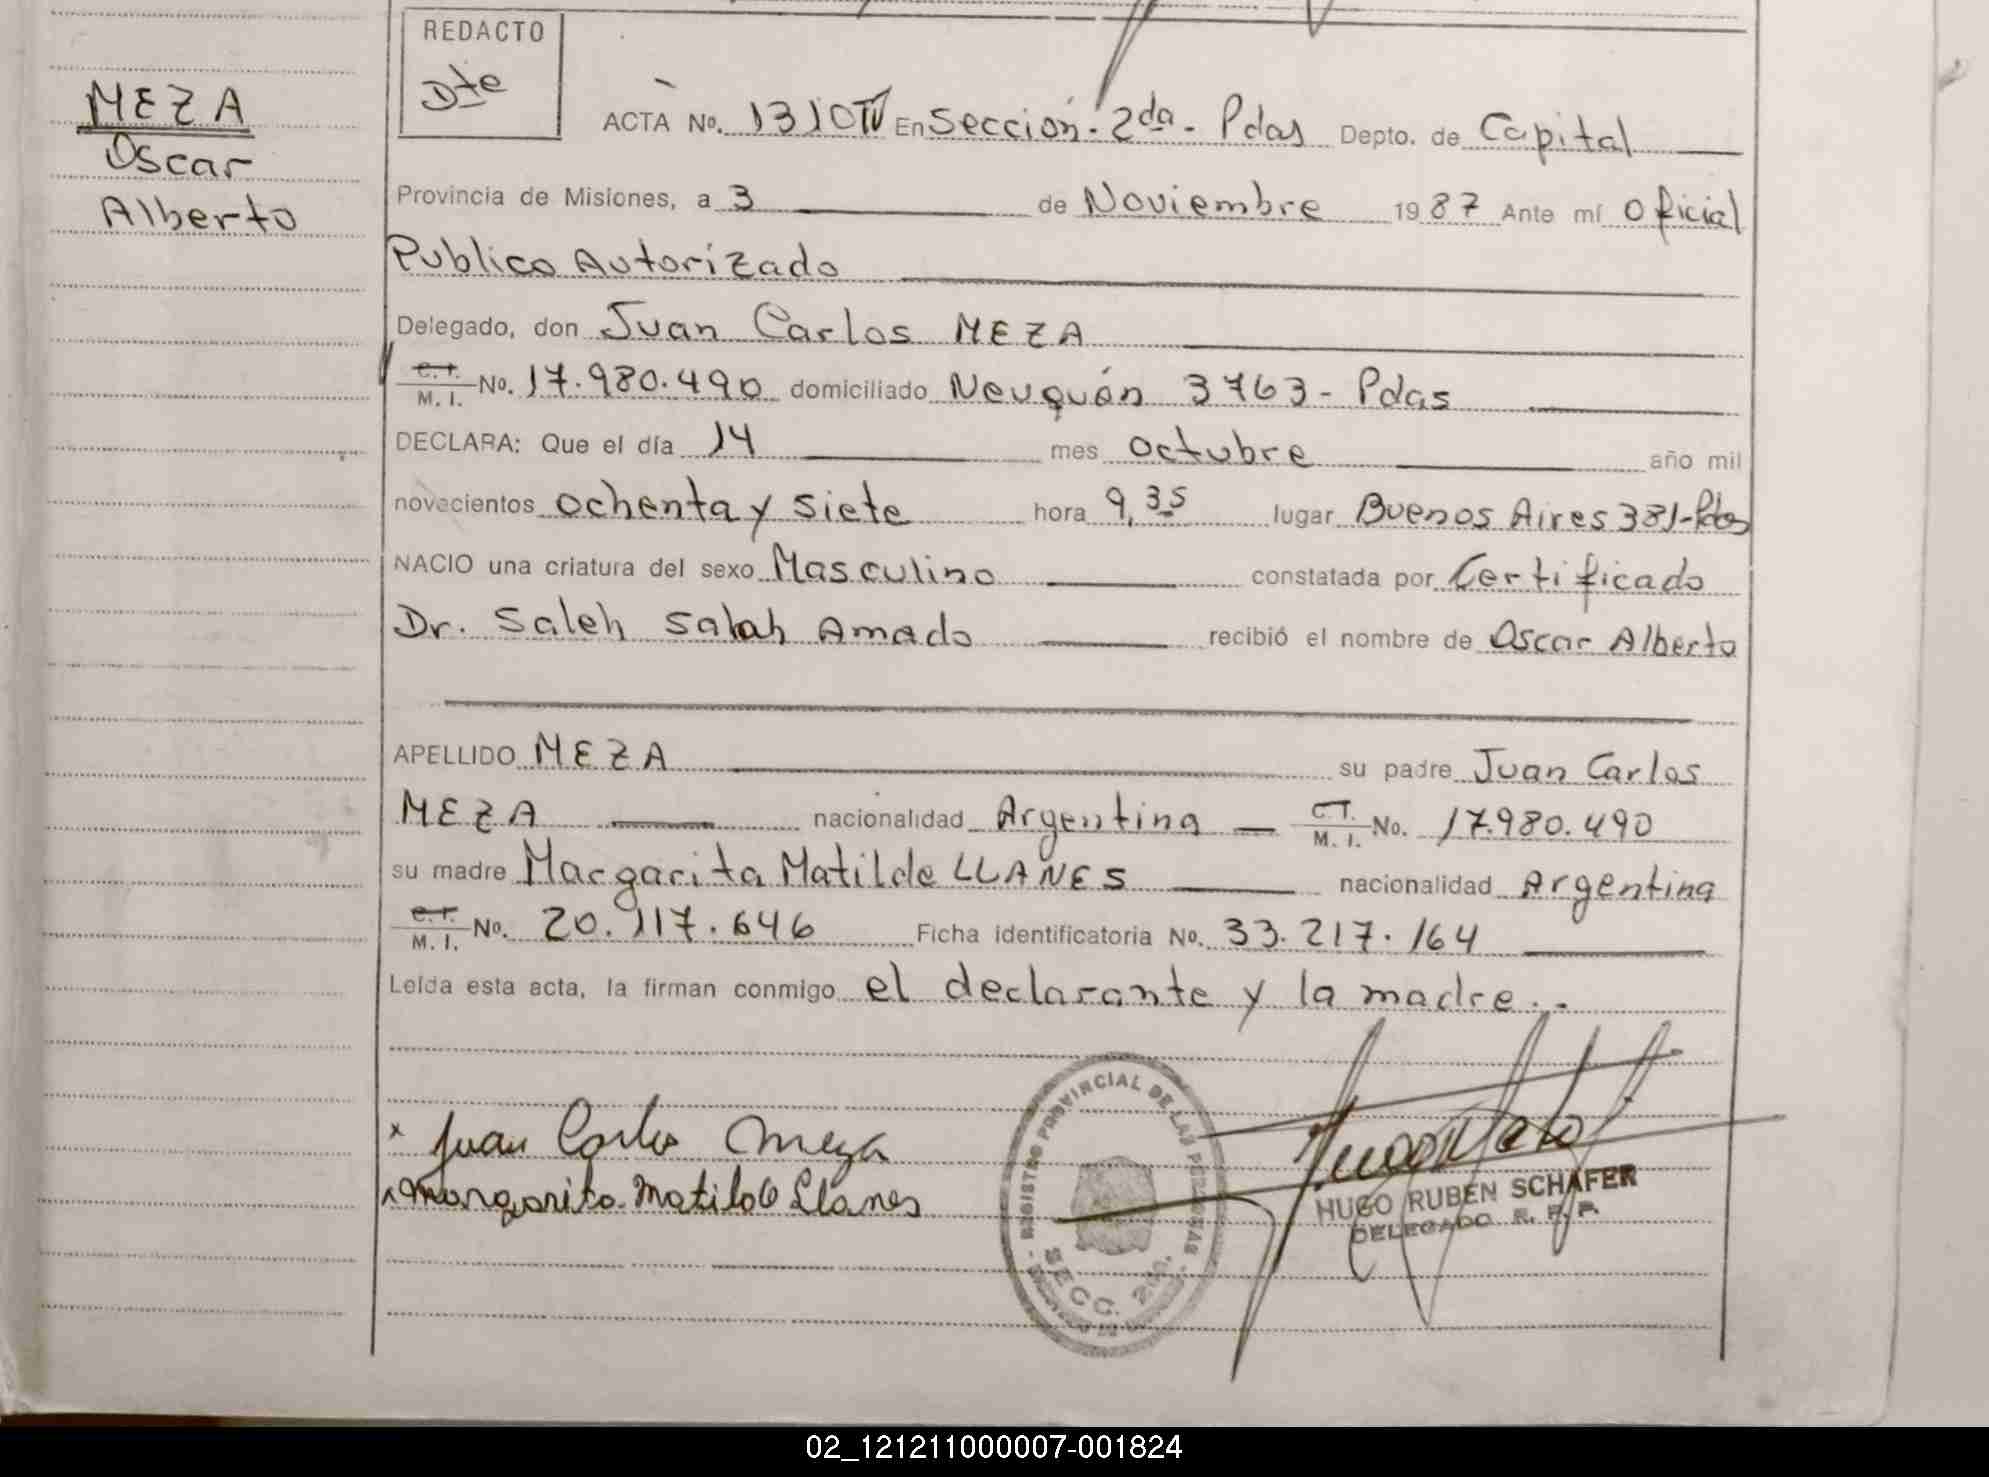 REDACTO
Dte
MEZA
Oscar
Alberto
ACTA No. 1310 IV En Sección - 2da - Pdas Depto. de Capital
Provincia de Misiones, a 3 de Noviembre 1987 Ante mí Oficial
Publico Autorizado
Delegado, don Juan Carlos MEZA
C.I. M. I. No. 17.980.490 domiciliado Neuquén 3763 - Pdas
DECLARA: Que el día 14 mes octubre año mil
novecientos ochenta y siete hora 9,35 lugar Buenos Aires 381-Pdas
NACIO una criatura del sexo Masculino constatada por Certificado
Dr. Saleh Salah Amado recibió el nombre de Oscar Alberto
APELLIDO MEZA su padre Juan Carlos
MEZA nacionalidad Argentina C.I. M. I. No. 17.980.490
su madre Margarita Matilde LLANES nacionalidad Argentina
C.I. M. I. No. 20.117.646 Ficha identificatoria No. 33.217.164
Leída esta acta, la firman conmigo el declarante y la madre..
x Juan Carlos Meza
Margarita Matilde Llanes
REGISTRO PROVINCIAL DE LAS PERSONAS
SECC. 2da.
HUGO RUBEN SCHAFER
DELEGADO R. P. P.
02_121211000007-001824